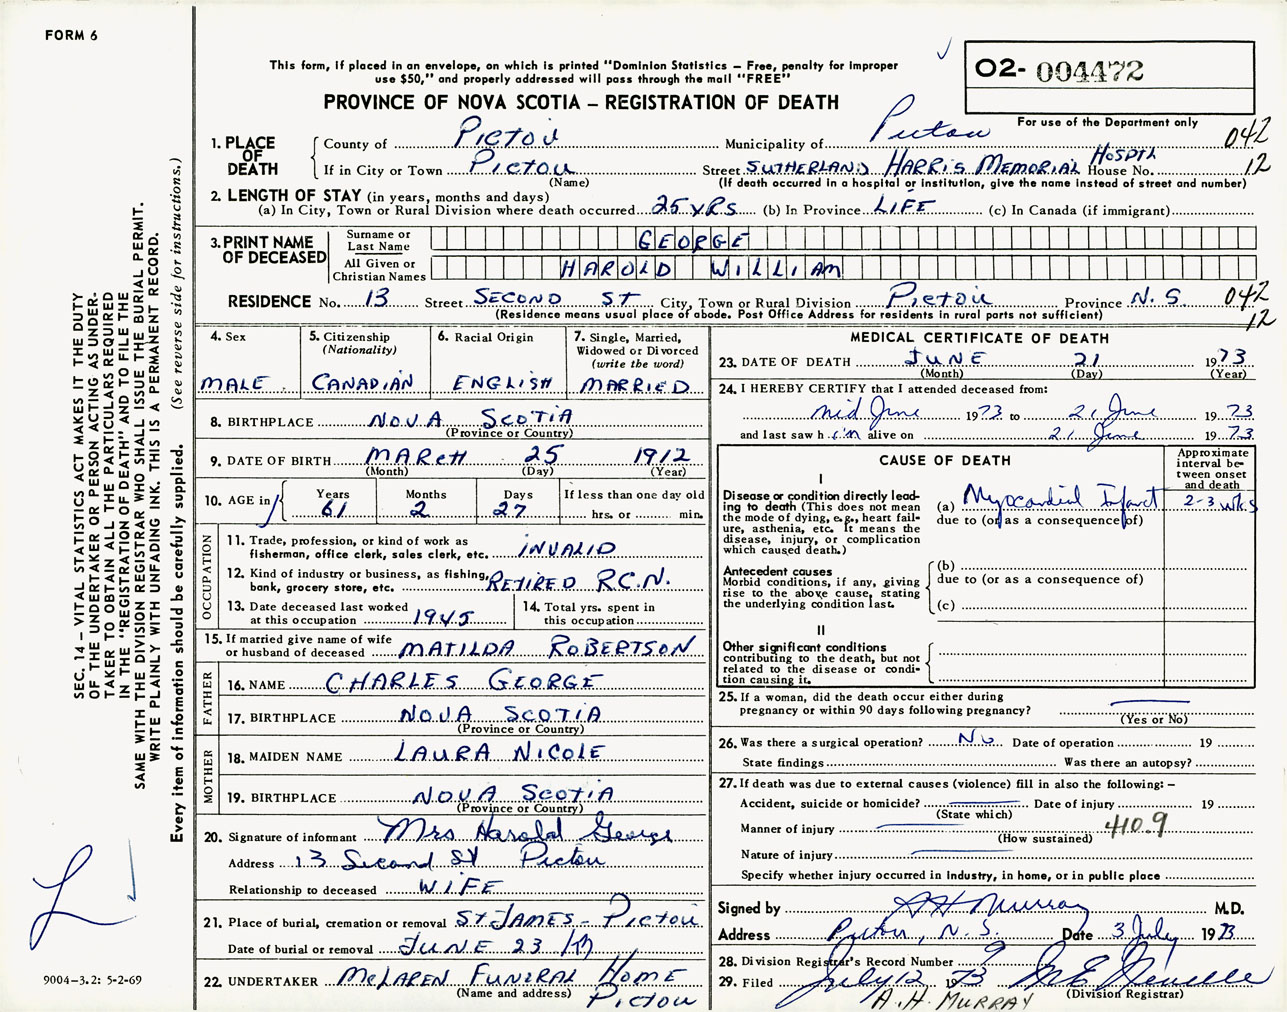 FORM 6
This form, if placed in an envelope, on which is printed "Dominion Statistics – Free, penalty for improper
use $50," and properly addressed will pass through the mail "FREE"
PROVINCE OF NOVA SCOTIA – REGISTRATION OF DEATH
02- 004472
For use of the Department only
1. PLACE OF DEATH
County of Pictou Municipality of Pictou 042
If in City or Town Pictou Street SUTHERLAND HARRIS MEMORIAL HOSPTL House No. 12
(Name) (If death occurred in a hospital or institution, give the name instead of street and number)
2. LENGTH OF STAY (in years, months and days)
(a) In City, Town or Rural Division where death occurred 25 YRS (b) In Province LIFE (c) In Canada (if immigrant)
3. PRINT NAME OF DECEASED
Surname or Last Name GEORGE
All Given or Christian Names HAROLD WILLIAM
RESIDENCE No. 13 Street SECOND ST City, Town or Rural Division Pictou Province N.S 042
(Residence means usual place of abode. Post Office Address for residents in rural parts not sufficient) 12
4. Sex MALE
5. Citizenship (Nationality) CANADIAN
6. Racial Origin ENGLISH
7. Single, Married, Widowed or Divorced (write the word) MARRIED
8. BIRTHPLACE NOVA SCOTIA
(Province or Country)
9. DATE OF BIRTH MARCH 25 1912
(Month) (Day) (Year)
10. AGE in Years 61 Months 2 Days 27 If less than one day old hrs. or min.
OCCUPATION
11. Trade, profession, or kind of work as
fisherman, office clerk, sales clerk, etc. INVALID
12. Kind of industry or business, as fishing,
bank, grocery store, etc. RETIRED R.C.N.
13. Date deceased last worked
at this occupation 1945
14. Total yrs. spent in
this occupation
15. If married give name of wife
or husband of deceased MATILDA ROBERTSON
FATHER
16. NAME CHARLES GEORGE
17. BIRTHPLACE NOVA SCOTIA
(Province or Country)
MOTHER
18. MAIDEN NAME LAURA NICOLE
19. BIRTHPLACE NOVA SCOTIA
(Province or Country)
20. Signature of informant Mrs Harold George
Address 13 Second St Pictou
Relationship to deceased WIFE
21. Place of burial, cremation or removal ST JAMES - PICTOU
Date of burial or removal JUNE 23
22. UNDERTAKER McLAREN FUNERAL HOME
(Name and address) PICTOU
MEDICAL CERTIFICATE OF DEATH
23. DATE OF DEATH JUNE 21 1973
(Month) (Day) (Year)
24. I HEREBY CERTIFY that I attended deceased from:
mid June 1973 to 21 June 1973
and last saw him alive on 21 June 1973
CAUSE OF DEATH
Approximate interval be-
tween onset and death
I
Disease or condition directly lead-
ing to death (This does not
mean the mode of dying, e.g., heart fail-
ure, asthenia, etc. It means the
disease, injury, or complication
which caused death.)
(a) Myocardial Infarct 2-3 wks
due to (or as a consequence of)
Antecedent causes
Morbid conditions, if any, giving
rise to the above cause, stating
the underlying condition last.
(b)
due to (or as a consequence of)
(c)
II
Other significant conditions
contributing to the death, but not
related to the disease or condi-
tion causing it.
25. If a woman, did the death occur either during
pregnancy or within 90 days following pregnancy?
(Yes or No)
26. Was there a surgical operation? No Date of operation 19
State findings Was there an autopsy?
27. If death was due to external causes (violence) fill in also the following: –
Accident, suicide or homicide? Date of injury 19
(State which)
Manner of injury 410.9
(How sustained)
Nature of injury
Specify whether injury occurred in industry, in home, or in public place
Signed by A H Murray M.D.
Address Pictou, N.S. Date 3 July 1973
28. Division Registrar's Record Number
29. Filed July 12 1973
A.H. MURRAY (Division Registrar)
SEC. 14 – VITAL STATISTICS ACT MAKES IT THE DUTY
OF THE UNDERTAKER OR PERSON ACTING AS UNDER-
TAKER TO OBTAIN ALL THE PARTICULARS REQUIRED
IN THE "REGISTRATION OF DEATH" AND TO FILE THE
SAME WITH THE DIVISION REGISTRAR WHO SHALL ISSUE THE BURIAL PERMIT.
WRITE PLAINLY WITH UNFADING INK. THIS IS A PERMANENT RECORD.
Every item of information should be carefully supplied. (See reverse side for instructions.)
9004–3.2: 5-2-69